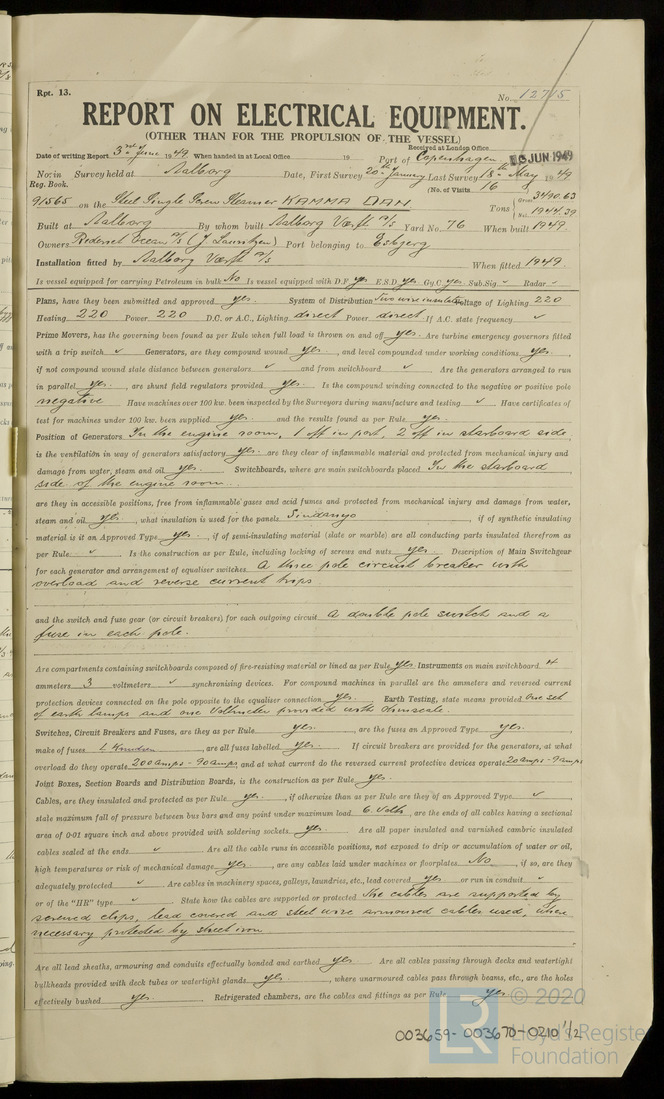 Rpt. 13.
No. 12715
REPORT ON ELECTRICAL EQUIPMENT.
(OTHER THAN FOR THE PROPULSION OF THE VESSEL)
Received at London Office
Date of writing Report 3rd June 1949 When handed in at Local Office 19 Port of Copenhagen JUN 1949
No. in Survey held at Aalborg Date, First Survey 20th January Last Survey 18th May 1949
Reg. Book. (No. of Visits 16
91565 on the Steel Single Screw Steamer KAMMA DAN Tons Gross 3490.63 Net 1944.39
Built at Aalborg By whom built Aalborg Værft A/S Yard No. 76 When built 1949
Owners Rederiet Ocean A/S (J. Lauritzen) Port belonging to Esbjerg
Installation fitted by Aalborg Værft A/S When fitted 1949
Is vessel equipped for carrying Petroleum in bulk No Is vessel equipped with D.F. yes E.S.D. yes Gy.C. yes Sub.Sig. ✓ Radar ✓
Plans, have they been submitted and approved yes. System of Distribution Two wire insulated Voltage of Lighting 220
Heating 220 Power 220 D.C. or A.C., Lighting direct Power direct If A.C. state frequency ✓
Prime Movers, has the governing been found as per Rule when full load is thrown on and off yes. Are turbine emergency governors fitted
with a trip switch ✓ Generators, are they compound wound yes, and level compounded under working conditions yes.,
if not compound wound state distance between generators ✓ and from switchboard ✓ Are the generators arranged to run
in parallel yes., are shunt field regulators provided yes. Is the compound winding connected to the negative or positive pole
negative Have machines over 100 kw. been inspected by the Surveyors during manufacture and testing ✓ Have certificates of
test for machines under 100 kw. been supplied yes and the results found as per Rule yes.
Position of Generators In the engine room, 1 off in port, 2 off in starboard side
is the ventilation in way of generators satisfactory yes. are they clear of inflammable material and protected from mechanical injury and
damage from water, steam and oil yes. Switchboards, where are main switchboards placed In the starboard
side of the engine room.
are they in accessible positions, free from inflammable gases and acid fumes and protected from mechanical injury and damage from water,
steam and oil yes, what insulation is used for the panels Sindanyo, if of synthetic insulating
material is it an Approved Type yes., if of semi-insulating material (slate or marble) are all conducting parts insulated therefrom as
per Rule ✓ Is the construction as per Rule, including locking of screws and nuts yes. Description of Main Switchgear
for each generator and arrangement of equaliser switches A three pole circuit breaker with
overload and reverse current trips
and the switch and fuse gear (or circuit breakers) for each outgoing circuit A double pole switch and a
fuse in each pole.
Are compartments containing switchboards composed of fire-resisting material or lined as per Rule yes. Instruments on main switchboard 4
ammeters 3 voltmeters ✓ synchronising devices. For compound machines in parallel are the ammeters and reversed current
protection devices connected on the pole opposite to the equaliser connection yes. Earth Testing, state means provided One set
of earth lamps and one Voltmeter provided with Ohmscale.
Switches, Circuit Breakers and Fuses, are they as per Rule yes., are the fuses an Approved Type yes.,
make of fuses L. Knudsen, are all fuses labelled yes. If circuit breakers are provided for the generators, at what
overload do they operate 200amps - 90amps and at what current do the reversed current protective devices operate 20amps - 9amps
Joint Boxes, Section Boards and Distribution Boards, is the construction as per Rule yes.
Cables, are they insulated and protected as per Rule yes., if otherwise than as per Rule are they of an Approved Type ✓,
state maximum fall of pressure between bus bars and any point under maximum load 6 Volts, are the ends of all cables having a sectional
area of 0·01 square inch and above provided with soldering sockets yes. Are all paper insulated and varnished cambric insulated
cables sealed at the ends ✓ Are all the cable runs in accessible positions, not exposed to drip or accumulation of water or oil,
high temperatures or risk of mechanical damage yes, are any cables laid under machines or floorplates No, if so, are they
adequately protected ✓ Are cables in machinery spaces, galleys, laundries, etc., lead covered yes or run in conduit ✓
or of the "HR" type ✓ State how the cables are supported or protected The cables are supported by
screwed clips, lead covered and steel wire armoured cables used, where
necessary protected by sheet iron
Are all lead sheaths, armouring and conduits effectually bonded and earthed yes. Are all cables passing through decks and watertight
bulkheads provided with deck tubes or watertight glands yes., where unarmoured cables pass through beams, etc., are the holes
effectively bushed yes. Refrigerated chambers, are the cables and fittings as per Rule yes.
© 2020
LR
Lloyd's Register
Foundation
003659-003670-0210 1/2